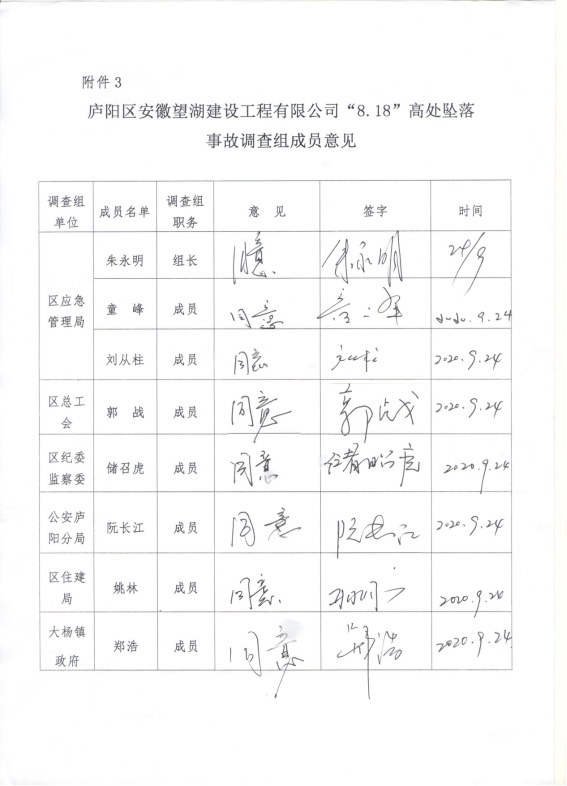 附件3
庐阳区安徽望湖建设工程有限公司“8.18”高处坠落
事故调查组成员意见
调查组单位 成员名单 调查组职务 意 见 签字 时间
区应急管理局 朱永明 组长 同意 朱永明 24/9
童 峰 成员 同意 童峰 2020.9.24
刘从柱 成员 同意 2020.9.24
区总工会 郭 战 成员 同意 郭战 2020.9.24
区纪委监察委 储召虎 成员 同意 储召虎 2020.9.24
公安庐阳分局 阮长江 成员 同意 阮长江 2020.9.24
区住建局 姚林 成员 同意 2020.9.24
大杨镇政府 郑浩 成员 同意 郑浩 2020.9.24